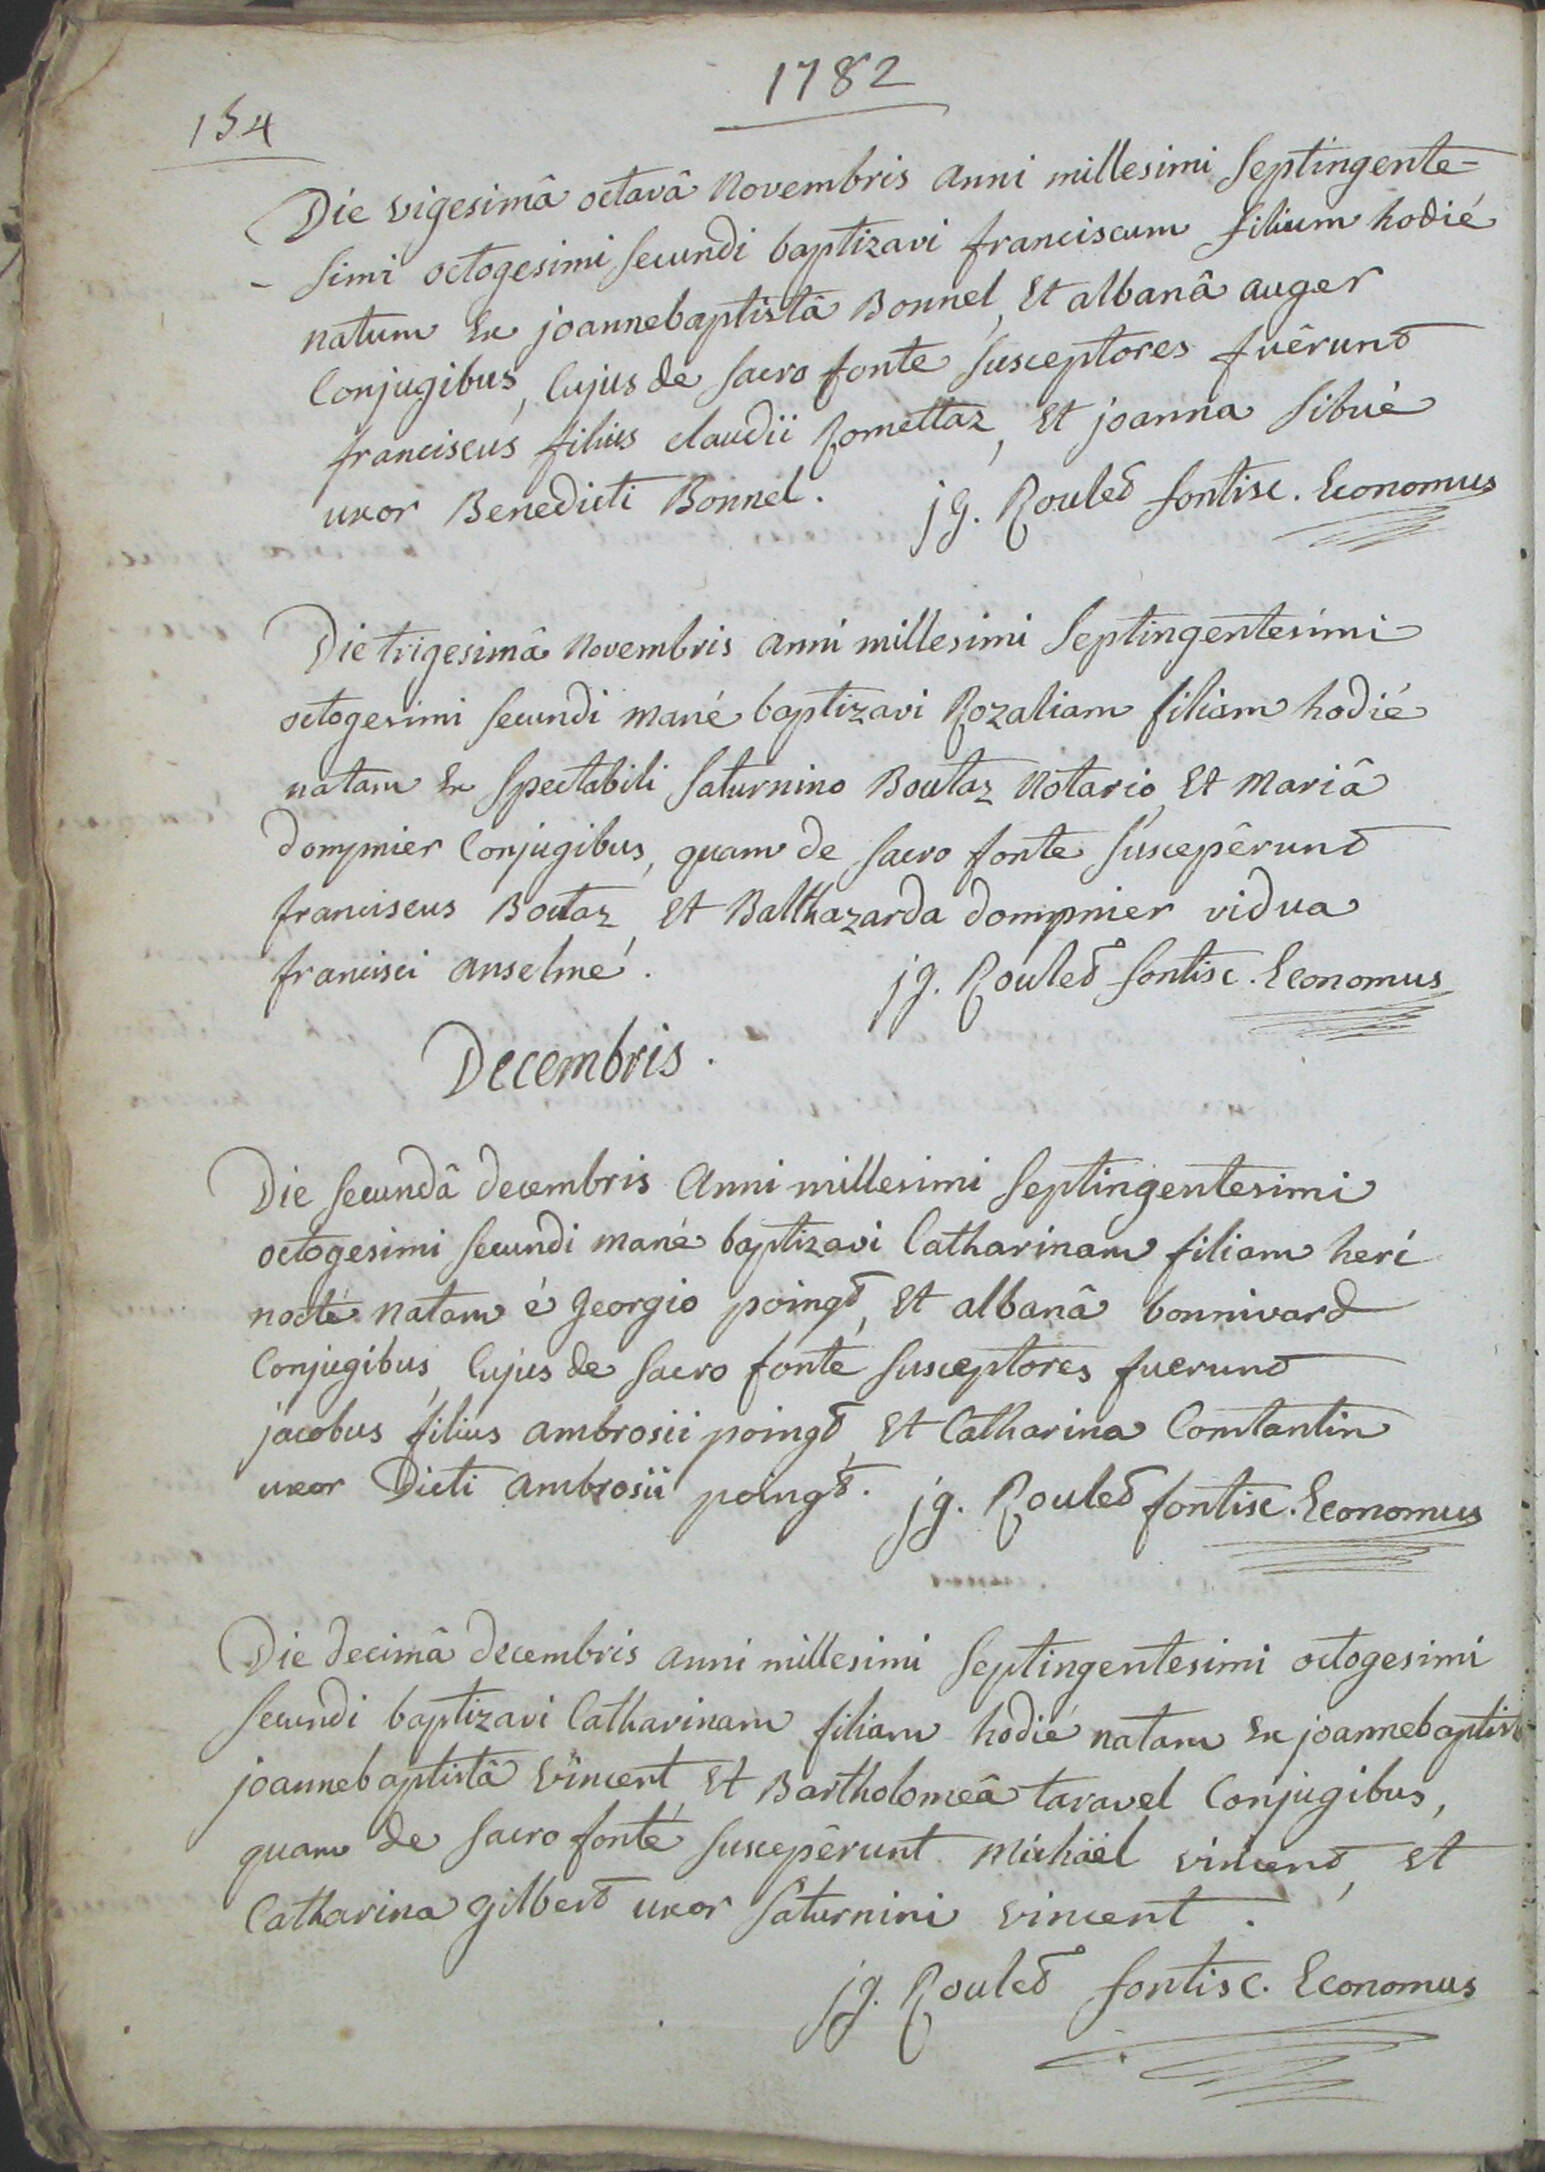 1782
154
Die vigesimâ octavâ novembris anni millesimi Septingente-
- simi octogesimi secundi baptizavi franciscum filium hodié
natum Ex joannebaptistâ Bonnel, Et albanâ auger
Conjugibus, Cujus de sacro fonte susceptores fuêrunt
franciscus filius claudii Romettaz, Et joanna Sibué
uxor Benedicti Bonnel. jg. Roulet fontisc. Economus
Die trigesimâ novembris anni millesimi Septingentesimi
octogesimi secundi mané baptizavi Rozaliam filiam hodié
natam Ex Spectabili Saturnino Boutaz Notario, Et Mariâ
dompnier Conjugibus, quam de sacro fonte suscepêrunt
franciscus Boutaz, Et Balthazarda dompnier vidua
francisci anselme. jg. Roulet fontisc. Economus
Decembris.
Die secundâ decembris Anni millesimi Septingentesimi
octogesimi secundi mané baptizavi Catharinam filiam heri
nocté natam é georgio poingt, Et albanâ bonnivard
Conjugibus, Cujus de sacro fonté susceptores fuerunt
jacobus filius ambrosii poingt, Et Catharina Constantin
uxor Dicti ambrosii poingt. jg. Roulet fontisc. Economus
Die decimâ decembris anni millesimi Septingentesimi octogesimi
secundi baptizavi Catharinam filiam hodié natam Ex joannebaptist
joannebaptistâ vincent, Et Bartholomeâ taravel Conjugibus,
quam de sacro fonté suscepêrunt Michäel vincent, Et
Catharina gilbert uxor Saturnini vincent.
jg. Roulet fontisc. Economus